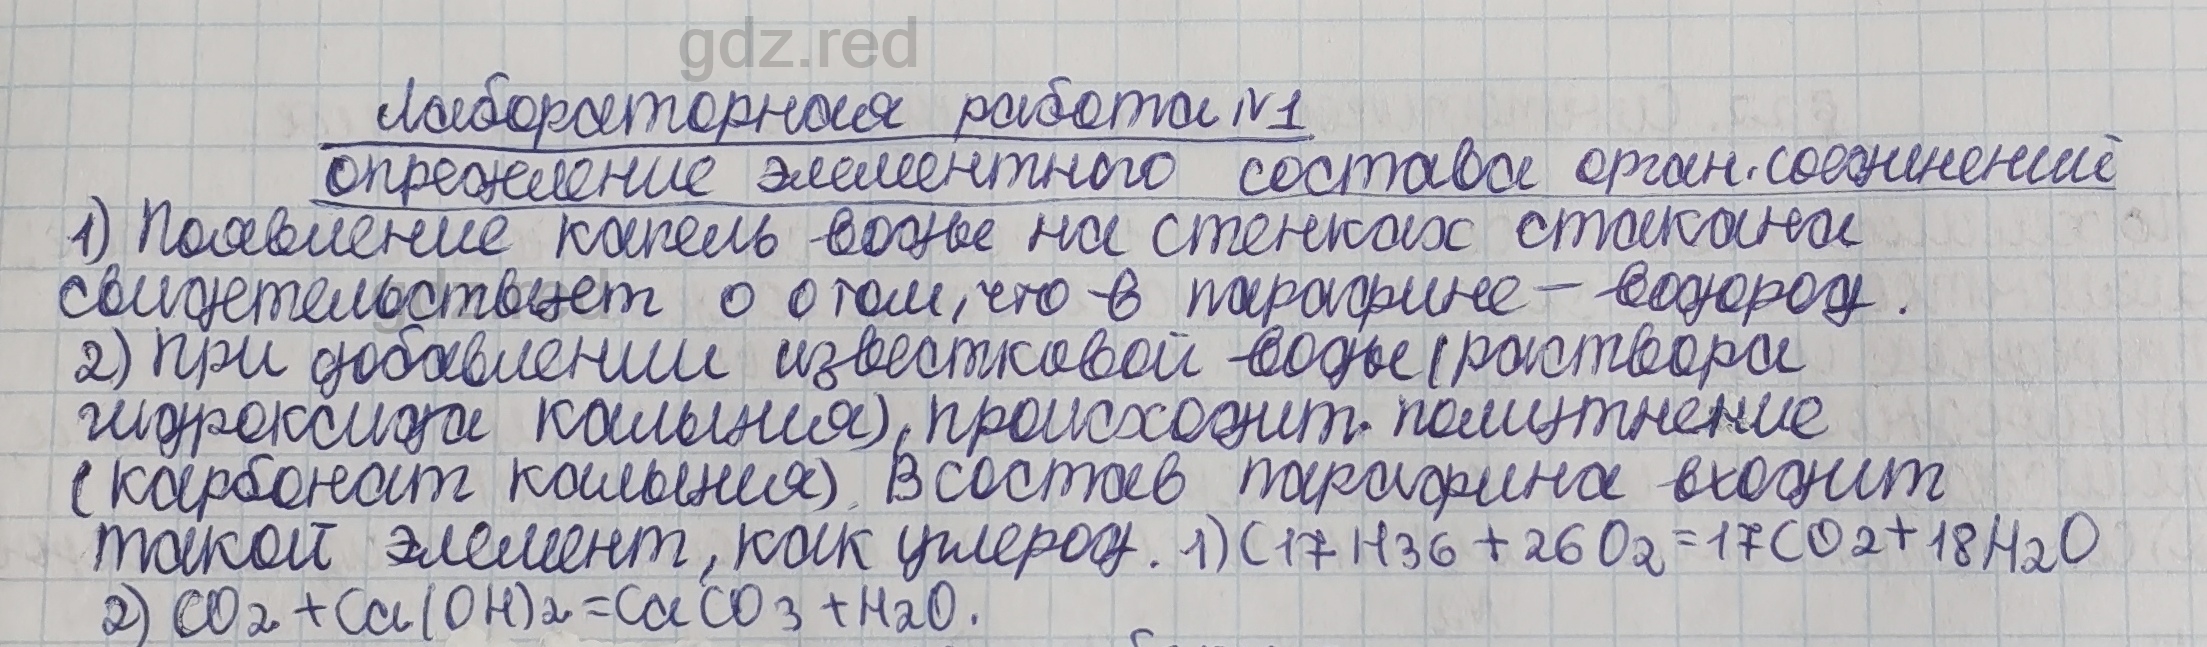 gdz.red
Лабораторная работа №1
Определение элементного состава орган. соединений
1) Появление капель воды на стенках стакана
свидетельствует о о том, что в парафине - водород.
2) При добавлении известковой воды (раствора
гидроксида кальция), происходит помутнение
(карбонат кальция). В состав парафина входит
такой элемент, как углерод. 1) C17H36 + 26O2 = 17CO2 + 18H2O
2) CO2 + Ca(OH)2 = CaCO3 + H2O.